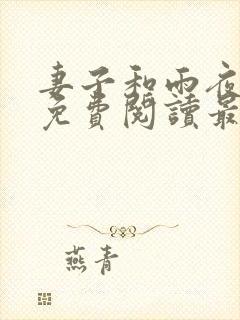 妻子和雨夜
免費閱讀最
燕青